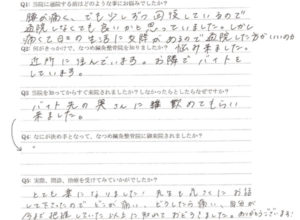 Q1: 当院に通院する前はどのような事にお悩みでしたか？
腰が痛く、でも少しずつ回復しているので
通院しなくても良いかと思っていました。しかし
痛くて日々の生活に支障があるので通院した方がいいのか
悩み来ました。
Q2: 何がきっかけで、なつめ鍼灸整骨院を知りましたか？
近所に住んでいます。お隣でバイトを
しています。
Q3: 当院を知ってからすぐ来院されましたか？しなかったらとしたらなぜですか？
バイト先の奥さんに進められてもらい
来ました。
Q4: なにが決め手となって、なつめ鍼灸整骨院に御来院されましたか？
Q5: 実際、問診、治療を受けてみていかがでしたか？
とても楽になりました！先生も気さくにお話
して下さったので どこが痛い、どうしたら痛い、自分が
今まで把握していた以上に知れておどろきました。ありがとうございます！